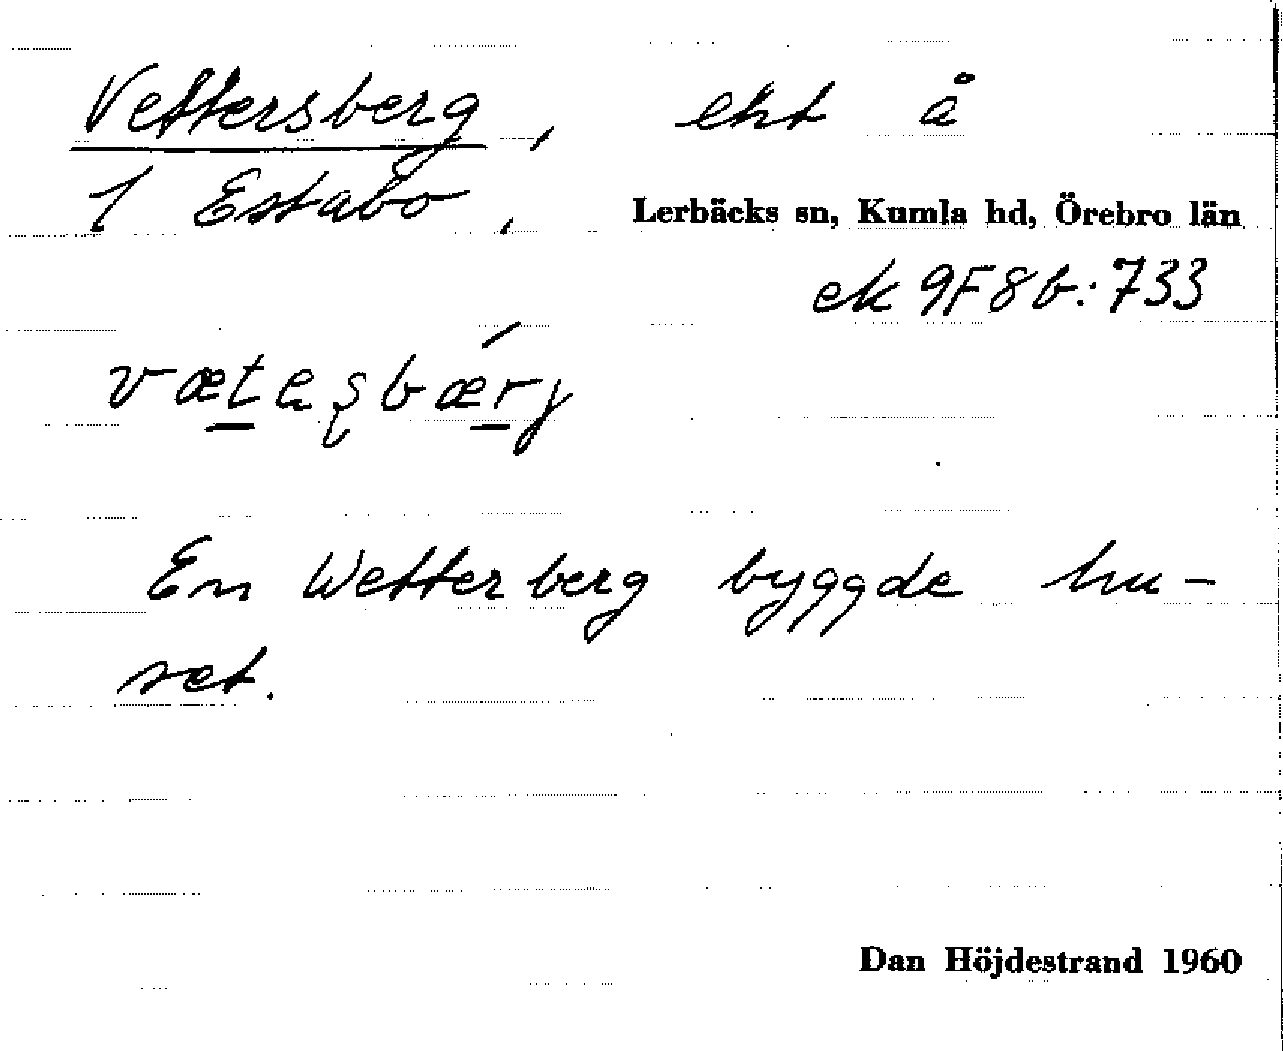 Vettersberg, eht å
1 Estabo, Lerbäcks sn, Kumla hd, Örebro län
ek 9F8b:733
vætezbærj
En Wetterberg byggde hu-
set.
Dan Höjdestrand 1960